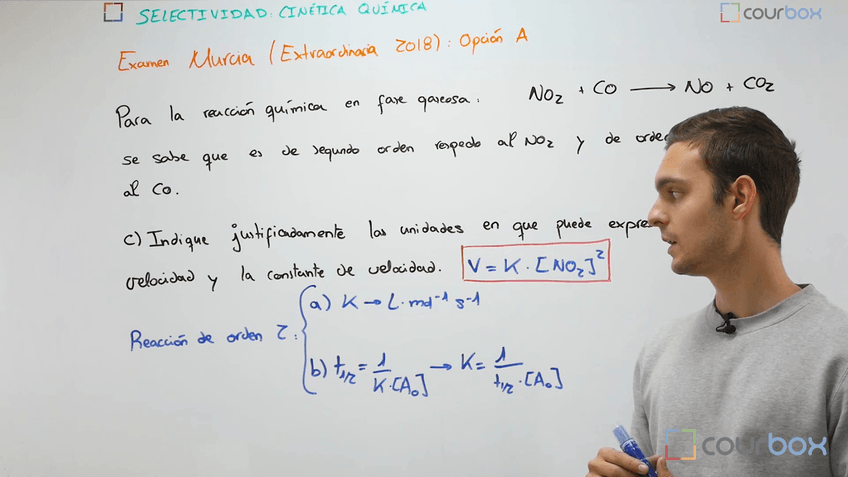 SELECTIVIDAD: CINÉTICA QUÍMICA
courbox
Examen Murcia (Extraordinaria 2018): Opción A
Para la reacción química en fase gaseosa: NO₂ + CO → NO + CO₂
se sabe que es de segundo orden respecto al NO₂ y de orde
al CO.
c) Indique justificadamente las unidades en que puede expre
velocidad y la constante de velocidad. V = K · [NO₂]²
Reacción de orden 2:
a) K → L·mol⁻¹ s⁻¹
b) t₁/₂ = 1/K·[A₀] → K = 1/t₁/₂·[A₀]
courbox